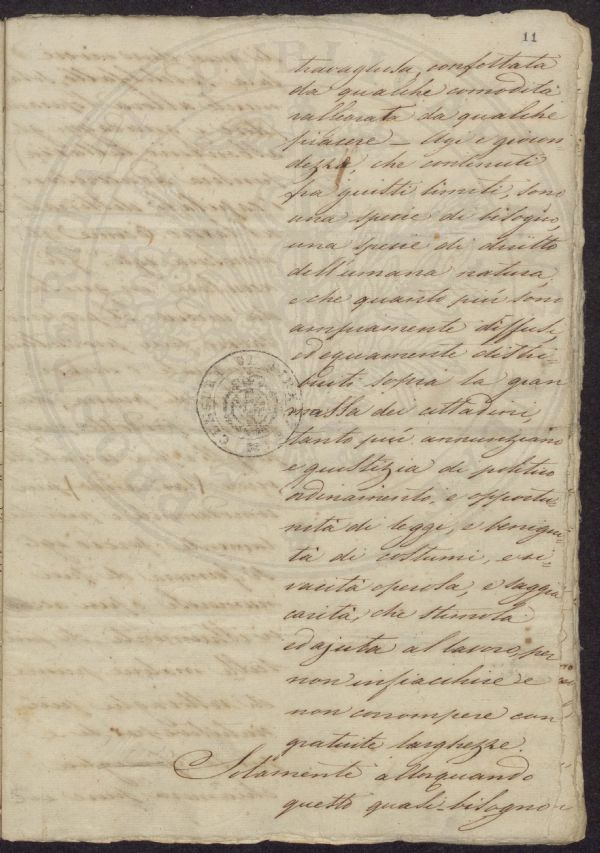 11
travagliosa, confortata
da qualche comodità
rallegrata da qualche
piacere - Agi e giocon-
dezza, che contenuti
fra giusti limiti, sono
una specie di bisogno,
una specie di diritto
dell'umana natura,
e che quanto più sono
ampiamente diffusi
ed equamente distri-
buiti sopra la gran
massa dei cittadini,
tanto più annunziano
e giustizia di politico
ordinamento, e opportu-
nità di leggi, e benigni-
tà di costumi, e vi-
vacità operosa, e saggia
carità, che stimola
ed ajuta al lavoro, per
non infiacchire e
non corrompere con
gratuite larghezze.
Solamente allorquando
questo quasi-bisogno